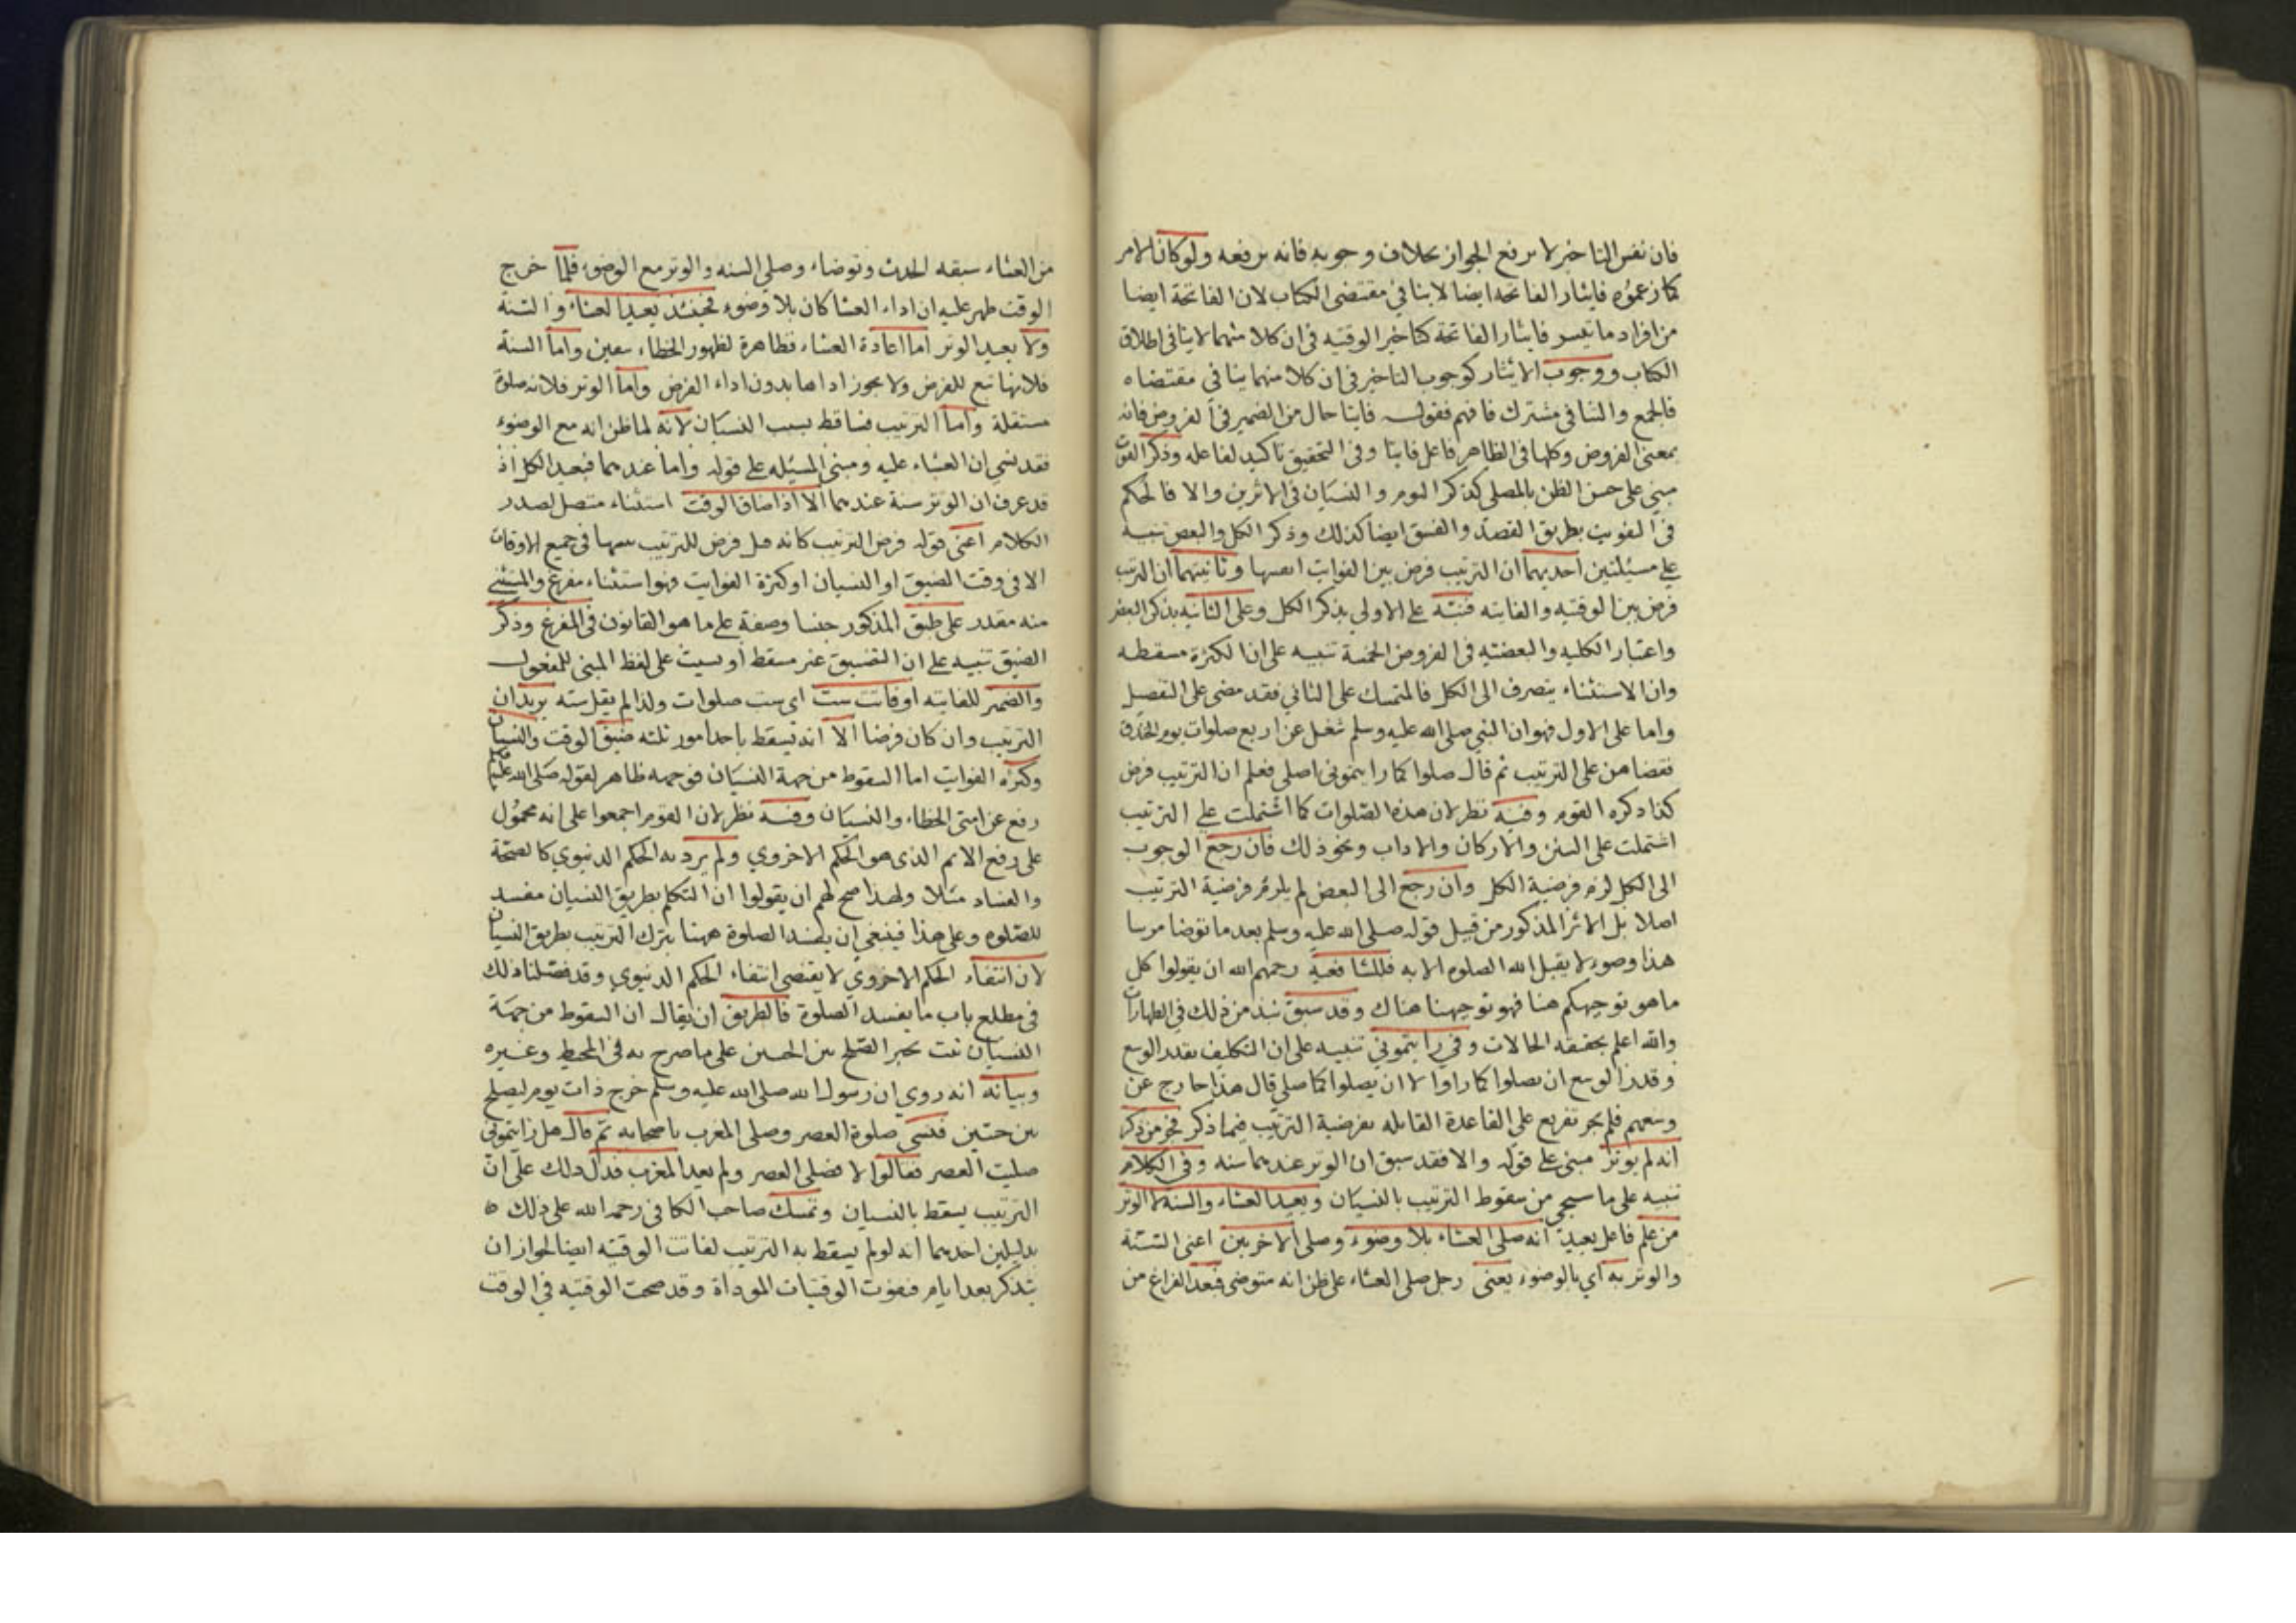 فان نفس التاخير لا يرفع الجواز بخلاف وجوبه فانه يرفعه ولو كان الامر
كما زعموه فايثار الفاتحه ايضا لا ينافي مقتضى الكتاب لان الفاتحة ايضا
من افراد ما تيسر فايثار الفاتحة كتاخير الوقتيه في ان كلا منهما لا ينافي اطلاق
الكتاب ووجوب الايثار كوجوب التاخير في ان كلا منهما ينافي مقتضاه
فالجمع والتنافي مشترك فافهم فقوله فايتا حال من الضمير في الفروض فانه
بمعنى الفروض وكلها في الظاهر فاعل فايتا وفي التحقيق تاكيد لفاعله وذكر الفوت
مبني على حسن الظن بالمصلي كذكر النوم والنسيان في الاثرين والا فالحكم
في التفويت بطريق القصد والفسق ايضا كذلك وذكر الكل والبعض تنبيه
على مسئلتين احديهما ان الترتيب فرض بين الفوايت انفسها وثانيتهما ان الترتيب
فرض بين الوقتيه والفايته فنبه على الاولى بذكر الكل وعلى الثانيه بذكر البعض
واعتبار الكليه والبعضيه في الفروض الخمسة تنبيه على ان الكثرة مسقطه
وان الاستثناء ينصرف الى الكل فالمتمسك على الثاني فقد مضى على التفصيل
واما على الاول فهو ان النبي صلى الله عليه وسلم شغل عن اربع صلوات يوم الخندق
فقضاهن على الترتيب ثم قال صلوا كما رايتموني اصلي فعلم ان الترتيب فرض
كذا ذكره القوم وفيه نظر لان هذه الصلوات كما اشتملت على الترتيب
اشتملت على السنن والاركان والاداب ونحو ذلك فان رجع الوجوب
الى الكل لزم فرضية الكل وان رجع الى البعض لم يلزم فرضية الترتيب
اصلا بل الاثر المذكور من قبيل قوله صلى الله عليه وسلم بعد ما توضا مرتبا
هذا وضوء لا يقبل الله الصلوه الا به فللشافعية رحمهم الله ان يقولوا كل
ما هو توجيهكم هنا فهو توجيهنا هناك وقد سبق نبذ من ذلك في الطهارات
والله اعلم بحقيقه الحالات وفي رايتموني تنبيه على ان التكليف بقدر الوسع
وقدر الوسع ان يصلوا كما راوا لا ان يصلوا كما صلى قال هذا خارج عن
وسعهم فلم يجز تفريع على القاعدة القايله بفرضية الترتيب فيما ذكر فجر من ذكر
انه لم يوتر مبني على قوله والا فقد سبق ان الوتر عندهما سنه وفي الكلام
تنبيه على ما سيجي من سقوط الترتيب بالنسيان ويعيد العشاء والسنه لا الوتر
من علم فاعل يعيد انه صلى العشاء بلا وضوء وصلى الاخريين اعنى السنة
والوتر به اي بالوضوء يعني رجل صلى العشاء على ظن انه متوضي فبعد الفراغ من
من العشاء سبقه الحدث وتوضاء وصلى السنه والوتر مع الوضوء فلما خرج
الوقت ظهر عليه ان اداء العشا كان بلا وضوء فحينئذ يعيد العشاء والسنة
ولا يعيد الوتر اما اعادة العشاء فظاهرة لظهور الخطاء بيقين واما السنة
فلانها تبع للفرض ولا يجوز اداها بدون اداء الفرض واما الوتر فلانه صلوة
مستقلة واما الترتيب فساقط بسبب النسيان لانه لما ظن انه مع الوضوء
فقد نسي ان العشاء عليه ومبنى المسئله على قوله واما عندهما فيعيد الكل اذ
قد عرف ان الوتر سنة عندهما الا اذا ضاق الوقت استثناء متصل لصدر
الكلام اعنى قوله فرض الترتيب كانه قيل فرض الترتيب بينها في جميع الاوقات
الا في وقت الضيق او النسيان او كثرة الفوايت فهو استثناء مفرغ والمستثنى
منه مقدر على طبق المذكور جنسا وصفة على ما هو القانون في المفرغ وذكر
الضيق تنبيه على ان التضييق غير مسقط او نسيت على لفظ المبني للمفعول
والضمير للفايته او فاتت ست اي ست صلوات ولذا لم يقل سته يريد ان
الترتيب وان كان فرضا الا انه يسقط باحد امور ثلثه ضيق الوقت والنسيان
وكثره الفوايت اما السقوط من جهة النسيان فوجهه ظاهر لقوله صلى الله عليه وسلم
رفع عن امتي الخطاء والنسيان وفيه نظر لان القوم اجمعوا على انه محمول
على رفع الاثم الذي هو الحكم الاخروي ولم يرد به الحكم الدنيوي كالصحة
والفساد مثلا ولهذا صح لهم ان يقولوا ان التكلم بطريق النسيان مفسد
للصلوه وعلى هذا فينبغي ان يفسد الصلوة ههنا بترك الترتيب بطريق النسيان
لان انتفاء الحكم الاخروي لا يقتضي انتفاء الحكم الدنيوي وقد فصلنا ذلك
في مطلع باب ما يفسد الصلوة فالطريق ان يقال ان السقوط من جهة
النسيان ثبت بخبر الصلح بين الحيين على ما صرح به في المحيط وغيره
وبيانه انه روي ان رسول الله صلى الله عليه وسلم خرج ذات يوم ليصلح
بين حيين فنسي صلوة العصر وصلى المغرب باصحابه ثم قال هل رايتموني
صليت العصر فقالوا لا فصلى العصر ولم يعد المغرب فدل ذلك على ان
الترتيب يسقط بالنسيان وتمسك صاحب الكافي رحمه الله على ذلك
بدليلين احدهما انه لو لم يسقط به الترتيب لفاتت الوقتيه ايضا لجواز ان
يتذكر بعد ايام فيفوت الوقتيات المؤداة وقد صحت الوقتيه في الوقت